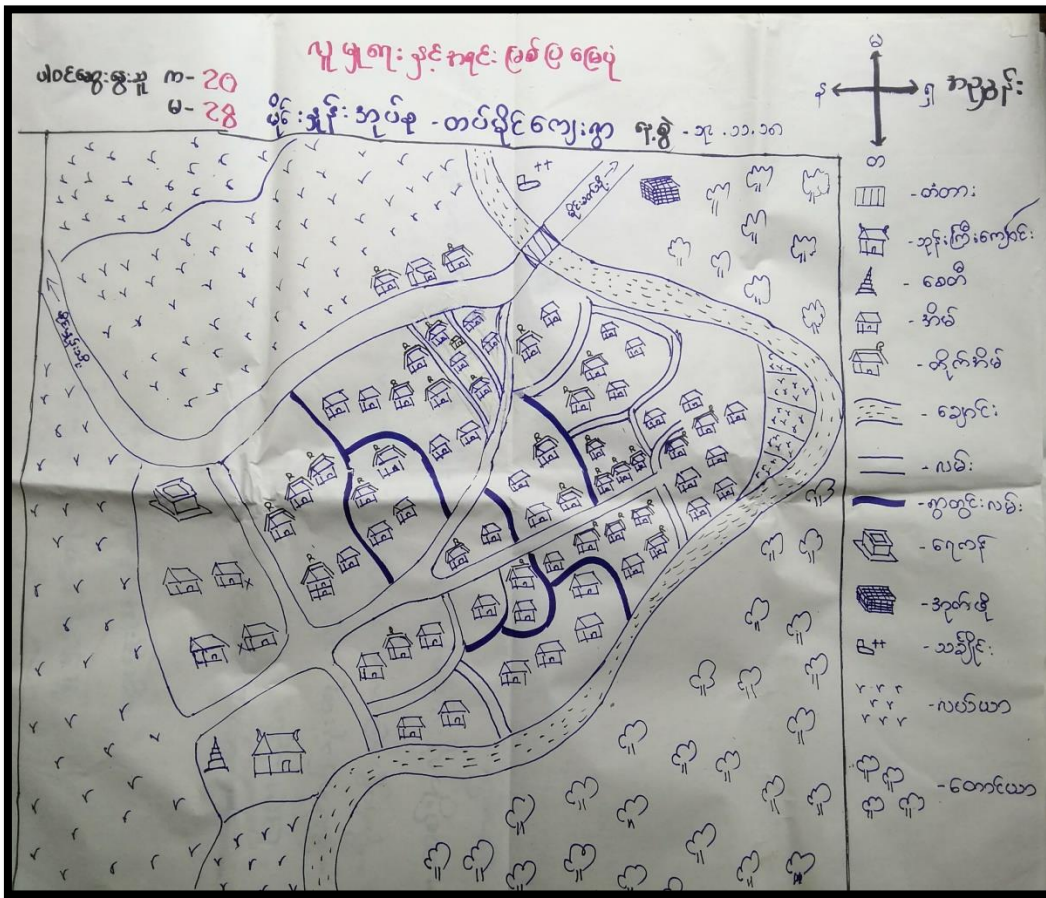 လူမှုရေးနှင့်အရင်းမြစ်ပြမြေပုံ
ပါဝင်ဆွေးနွေးသူ က- 20
မ- 28
မိုင်းနွန်းအုပ်စု - တပ်မိုင်ကျေးရွာ ရ.စွဲ - ၁၃.၁၁.၁၈
မ
န
ရှ
တ
အညွှန်း
- တံတား
- ဘုန်းကြီးကျောင်း
- စေတီ
- အိမ်
- တိုက်အိမ်
- ချောင်း
- လမ်း
- ရွာတွင်းလမ်း
- ရေကန်
- အုတ်ဖို
- သင်္ချိုင်း
- လယ်ယာ
- တောင်ယာ